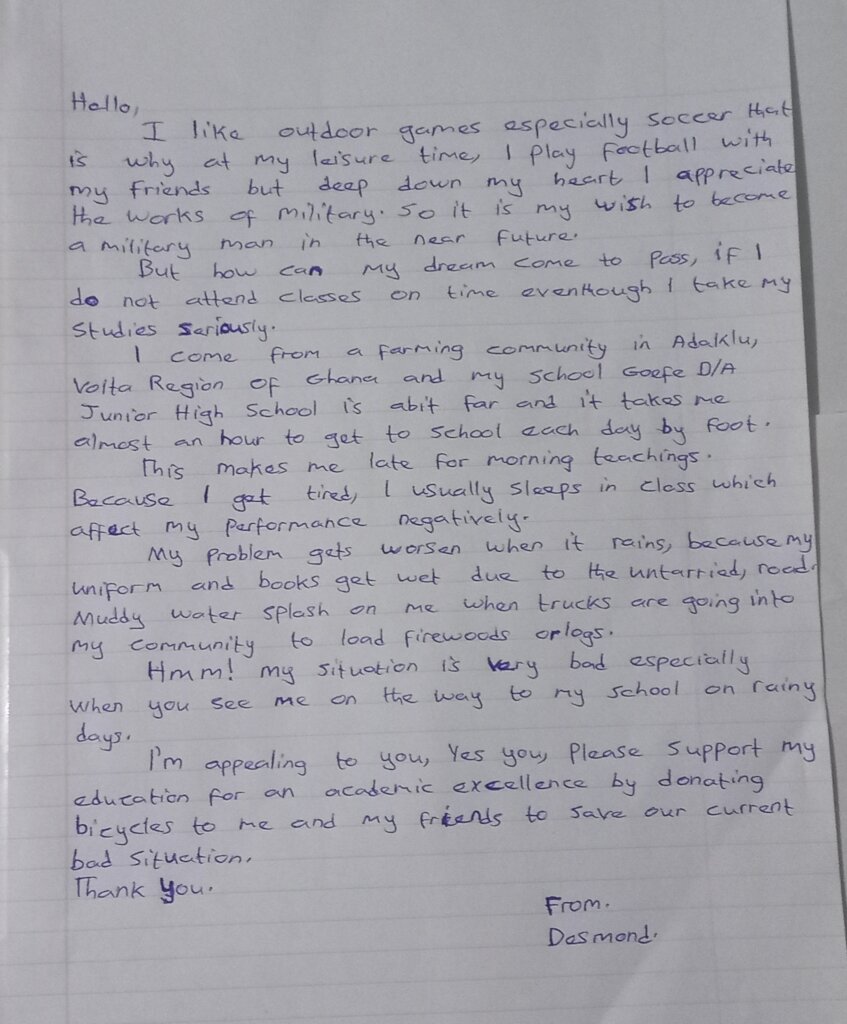 Hello,
I like outdoor games especially soccer that
is why at my leisure time, I play football with
my friends but deep down my heart I appreciate
the works of military. So it is my wish to become
a military man in the near future.
But how can my dream come to pass, if I
do not attend classes on time eventhough I take my
studies seriously.
I come from a farming community in Adaklu,
Volta Region of Ghana and my school Goefe D/A
Junior High School is abit far and it takes me
almost an hour to get to school each day by foot.
This makes me late for morning teachings.
Because I get tired, I usually sleeps in class which
affect my performance negatively.
My problem gets worsen when it rains, because my
uniform and books get wet due to the untarried, road.
Muddy water splash on me when trucks are going into
my community to load firewoods or logs.
Hmm! my situation is very bad especially
when you see me on the way to my school on rainy
days.
I'm appealing to you, Yes you, Please support my
education for an academic excellence by donating
bicycles to me and my friends to save our current
bad situation.
Thank you.
From.
Desmond.